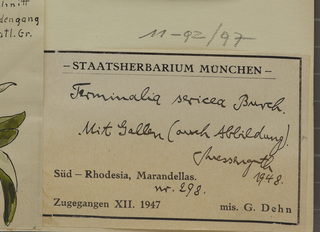 chnitt
dengang
atl. Gr.
11-92/97
– STAATSHERBARIUM MÜNCHEN –
Terminalia sericea Burch.
Mit Gallen (auch Abbildung).
Suessenguth
1948.
Süd – Rhodesia, Marandellas.
nr. 298.
Zugegangen XII. 1947 mis. G. Dehn